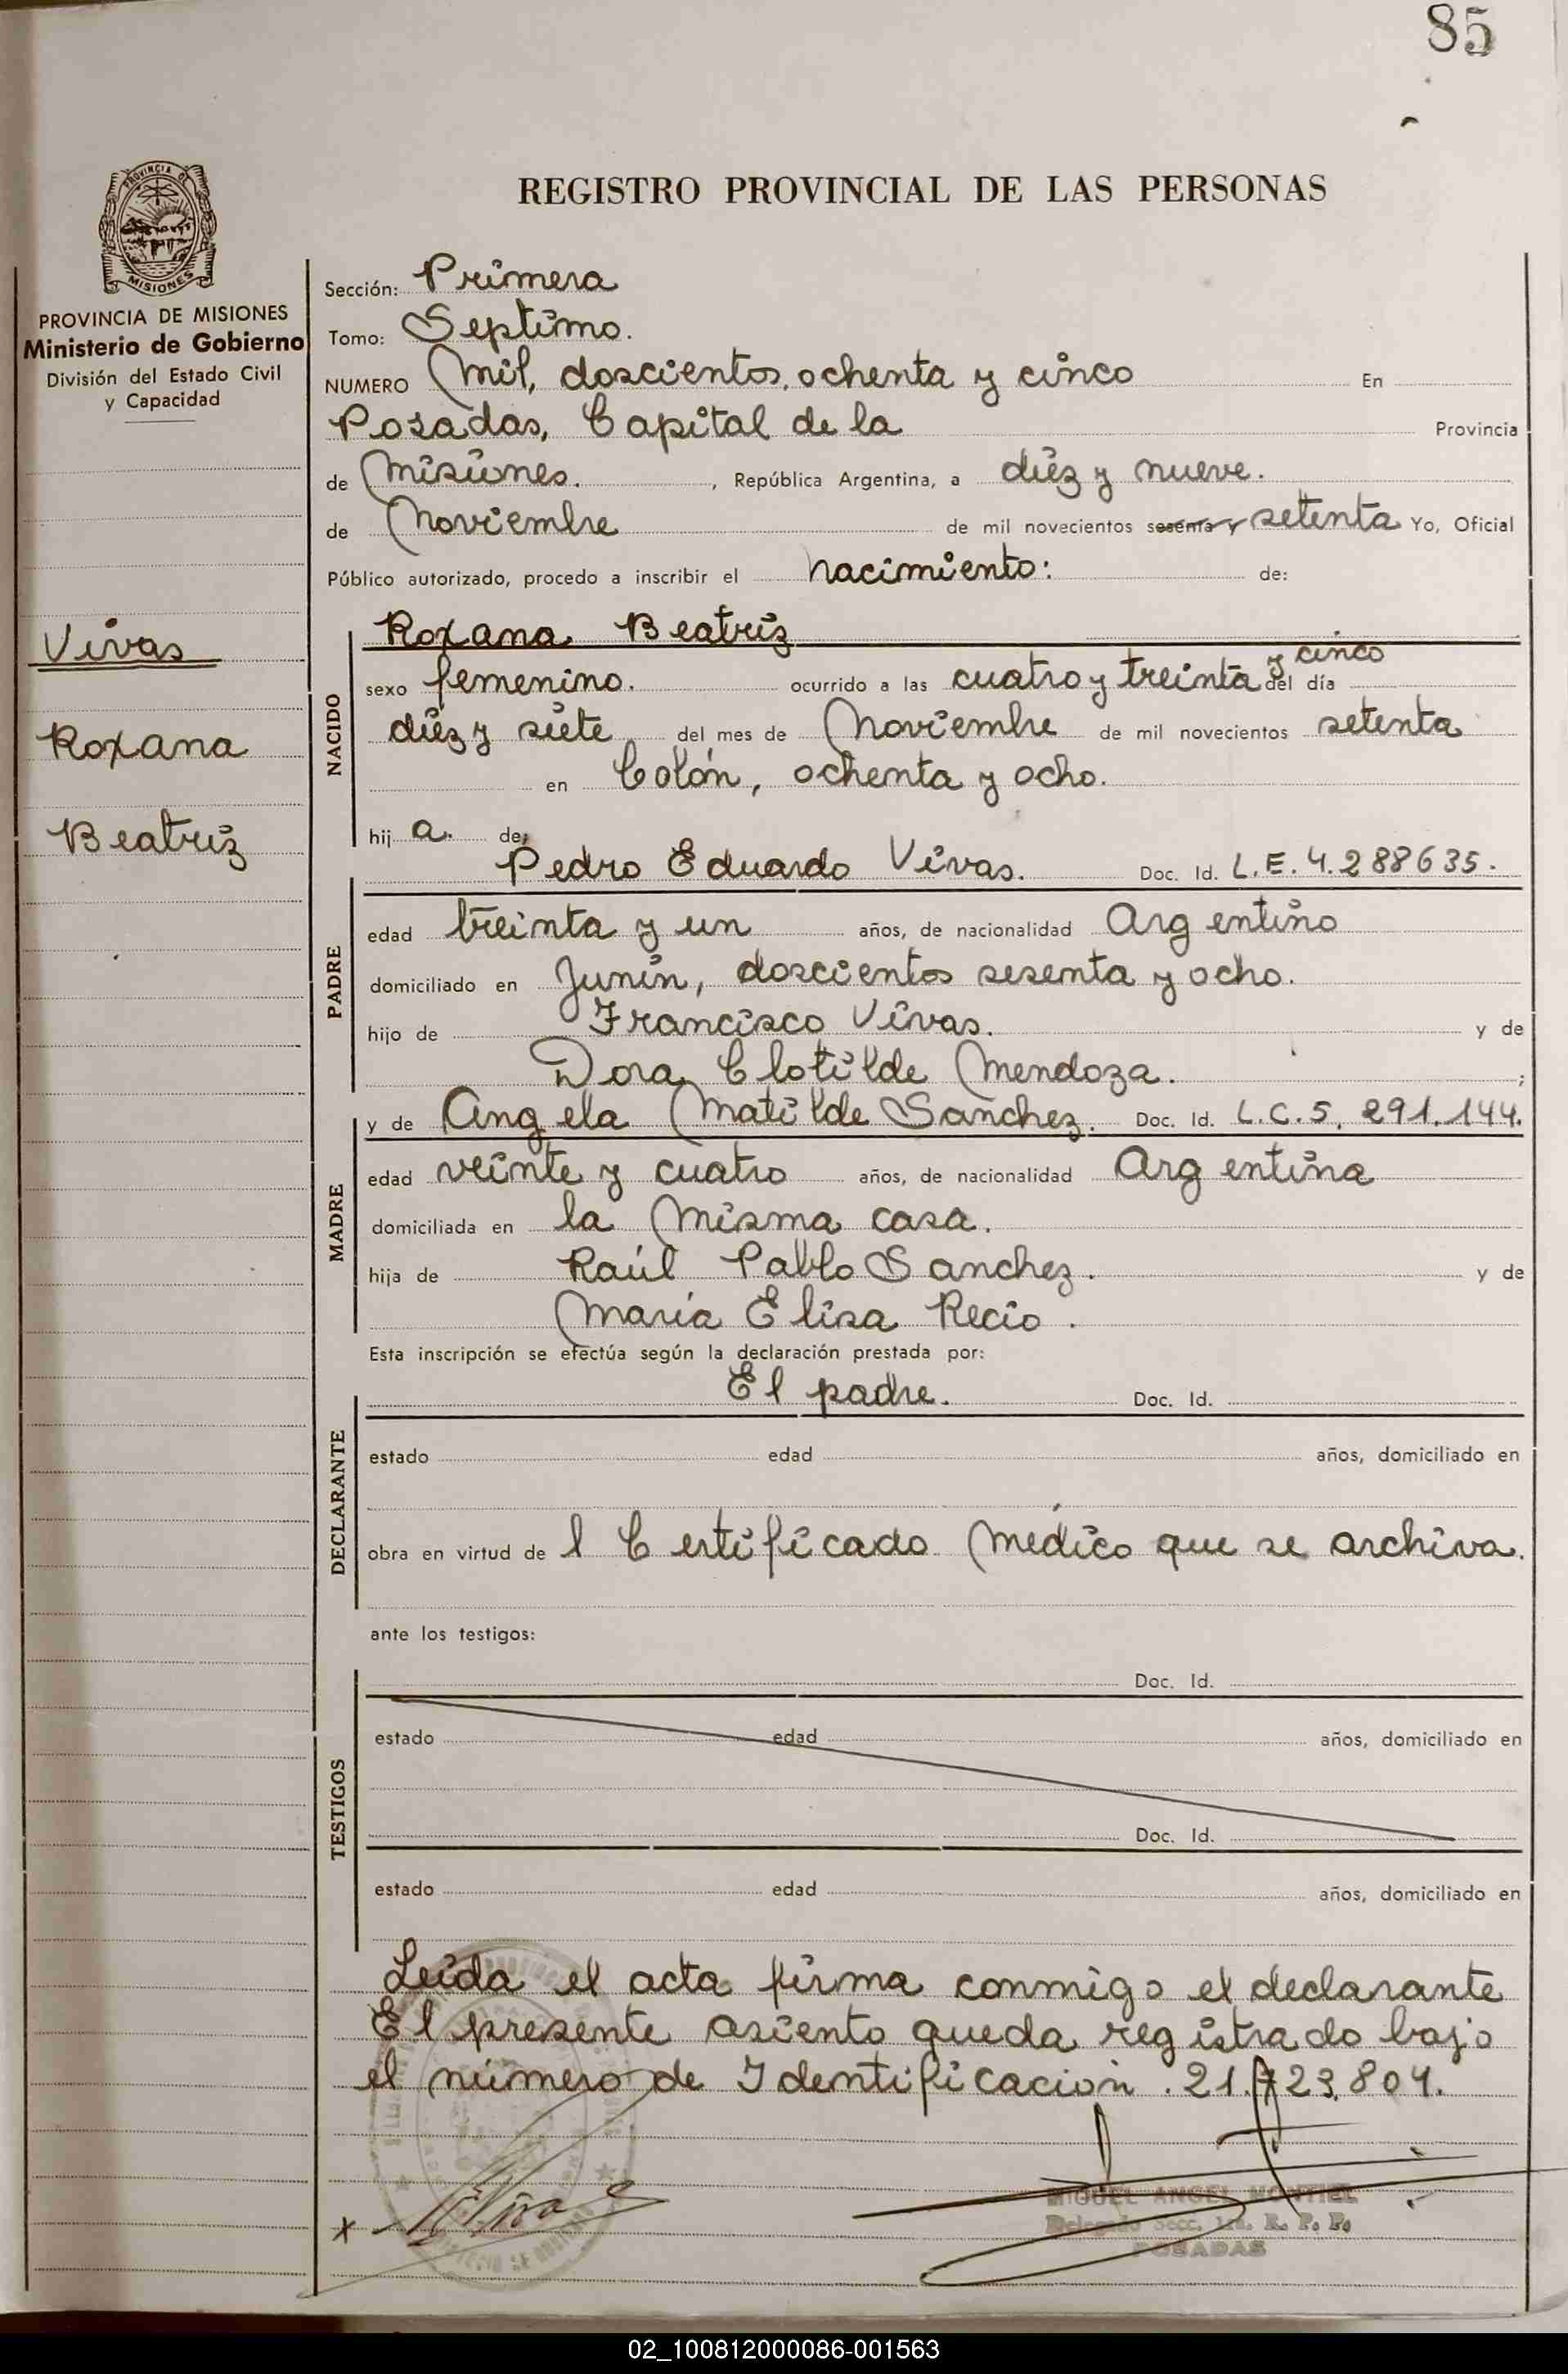 85
REGISTRO PROVINCIAL DE LAS PERSONAS
PROVINCIA DE
MISIONES
PROVINCIA DE MISIONES
Ministerio de Gobierno
División del Estado Civil
y Capacidad
Vivas
Roxana
Beatriz
Sección: Primera
Tomo: Septimo.
NUMERO Mil, doscientos, ochenta y cinco En
Posadas, Capital de la Provincia
de Misiones. , República Argentina, a diez y nueve.
de Noviembre de mil novecientos sesenta y setenta Yo, Oficial
Público autorizado, procedo a inscribir el nacimiento: de:
NACIDO
Roxana Beatriz
y cinco
sexo femenino. ocurrido a las cuatro y treinta del día
diez y siete del mes de Noviembre de mil novecientos setenta
en Colón, ochenta y ocho.
hij a. de:
PADRE
Pedro Eduardo Vivas. Doc. Id. L.E. 4.288635.
edad treinta y un años, de nacionalidad Argentino
domiciliado en Junín, doscientos sesenta y ocho.
hijo de Francisco Vivas. y de
Dora Clotilde Mendoza. ;
MADRE
y de Angela Matilde Sanchez. Doc. Id. L.C. 5. 291.144.
edad veinte y cuatro años, de nacionalidad Argentina
domiciliada en la misma casa.
hija de Raúl Pablo Sanchez. y de
María Elisa Recio.
Esta inscripción se efectúa según la declaración prestada por:
DECLARANTE
El padre. Doc. Id.
estado edad años, domiciliado en
obra en virtud de l Certificado Médico que se archiva.
ante los testigos:
TESTIGOS
Doc. Id.
estado edad años, domiciliado en
Doc. Id.
estado edad años, domiciliado en
Leída el acta firma conmigo el declarante
El presente asiento queda registrado bajo
el número de Identificación. 21.723.804.
MIGUEL ANGEL MONTIEL
Delegado Secc. 1ra. R. P. P.
POSADAS
02_100812000086-001563